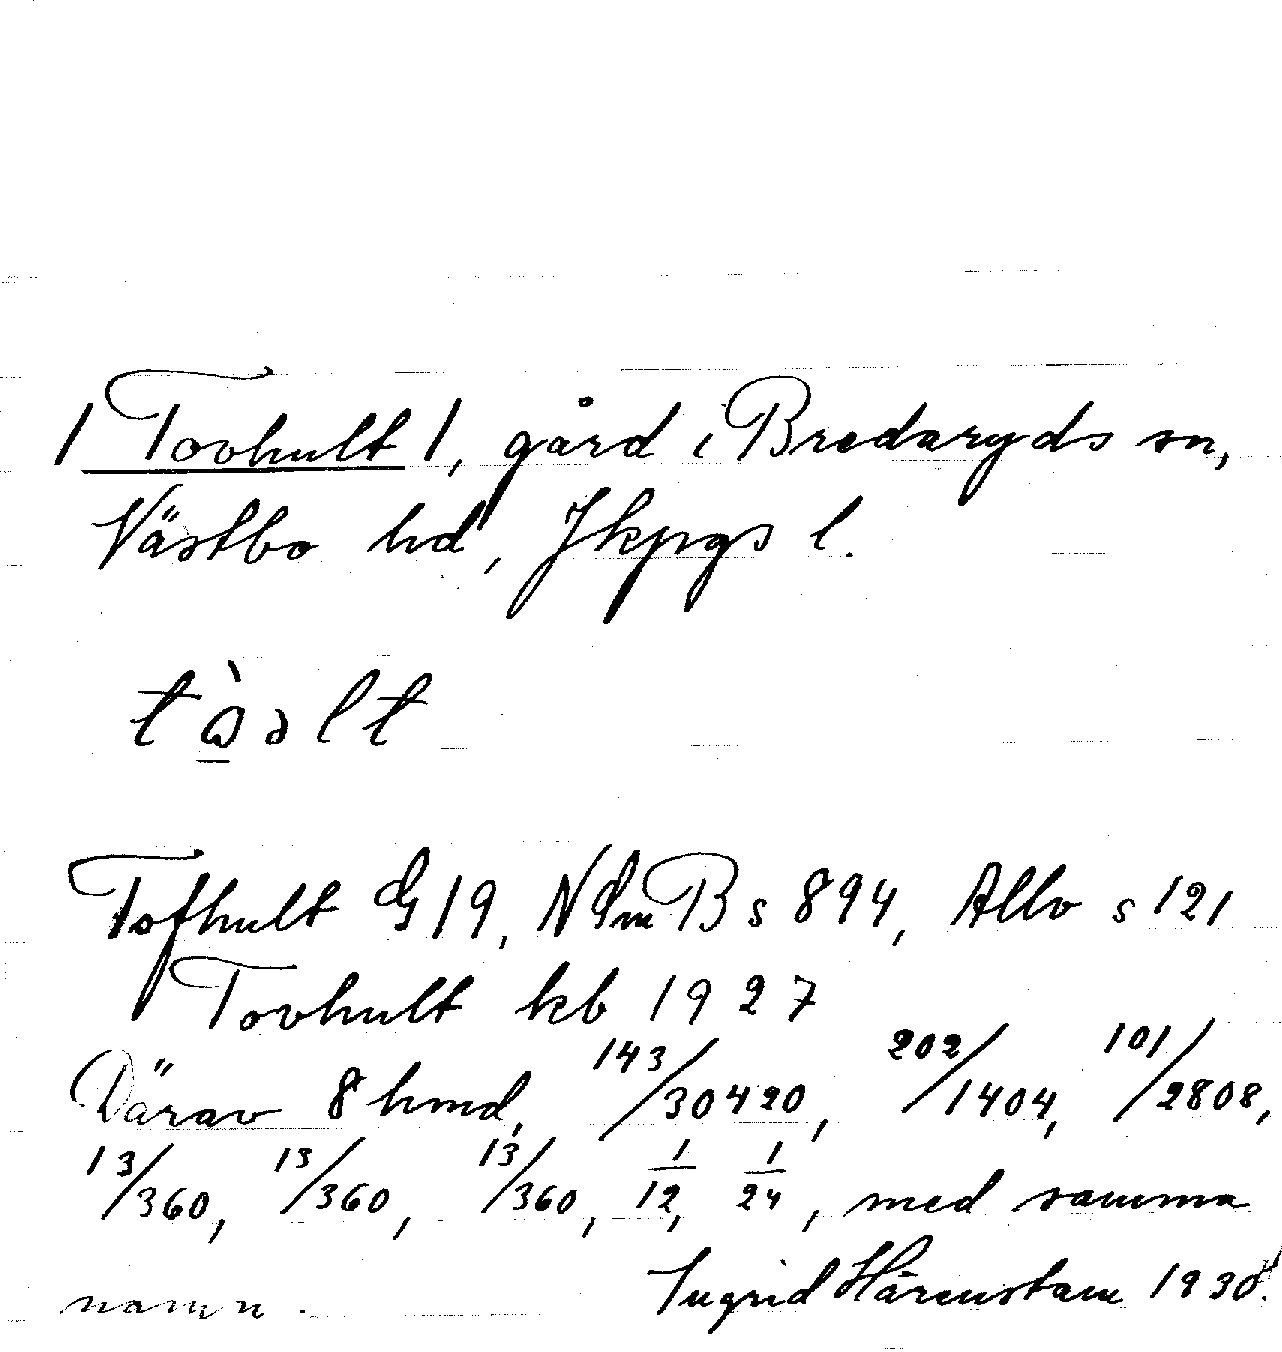 / Tovhult /, gård i Bredaryds sn,
Västbo hd, Jkpgs l.
Tofhult G 19, NdmB s 894, Allv s 121
Tovhult kb 1927
Därav 8 hmd, 143/30420, 202/1404, 101/2808,
13/360, 13/360, 13/360, 1/12, 1/24, med samma
namn. Ingrid Härenstam 1930.